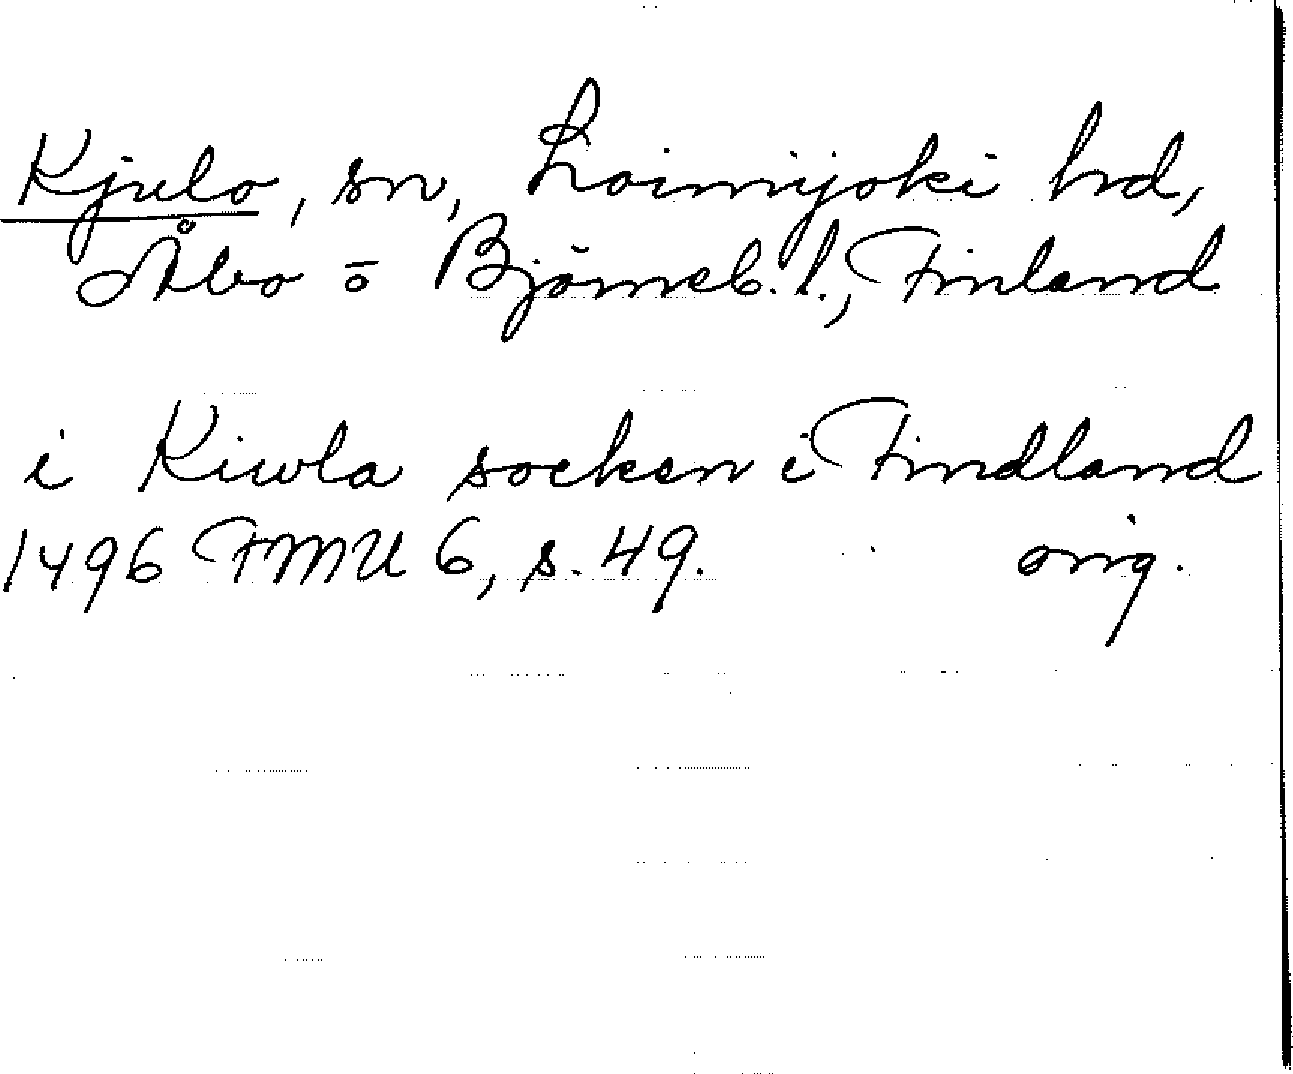 Kjulo, sn, Loimijoki hd,
Åbo o Björneb. l., Finland
i Kiwla socken i Findland
1496 FMU 6, s. 49. orig.